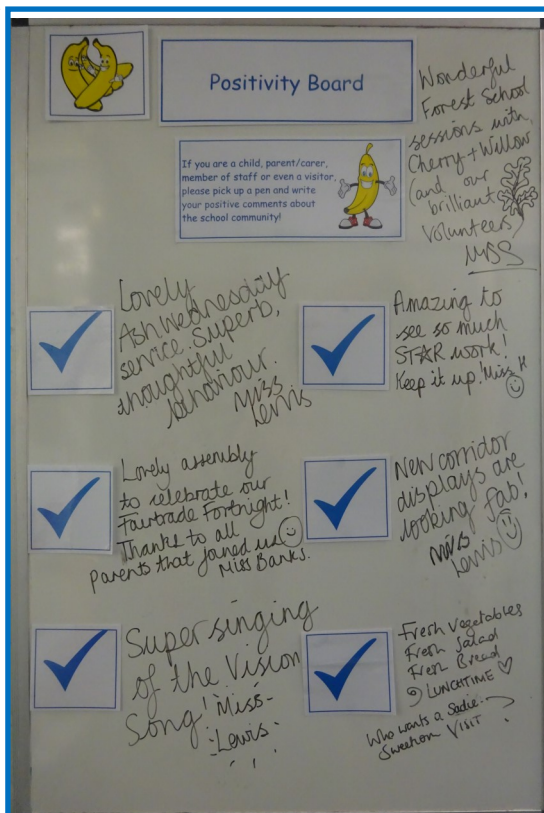 Positivity Board
If you are a child, parent/carer,
member of staff or even a visitor,
please pick up a pen and write
your positive comments about
the school community!
Wonderful
Forest School
sessions with
Cherry + Willow
(and our
brilliant
Volunteers)
Lovely
Ash Wednesday
service. Superb,
thoughtful
behaviour.
Miss
Lewis
Amazing to
see so much
STAR work!
Keep it up! Miss H
Lovely assembly
to celebrate our
Fairtrade Fortnight!
Thanks to all
parents that joined us
Miss Banks.
New corridor
displays are
looking fab!
Miss
Lewis
Super singing
of the Vision
Song! Miss
Lewis
Fresh Vegetables
Fresh Salad
Fresh Bread
@ LUNCHTIME
Who wants a Sadie
VISIT